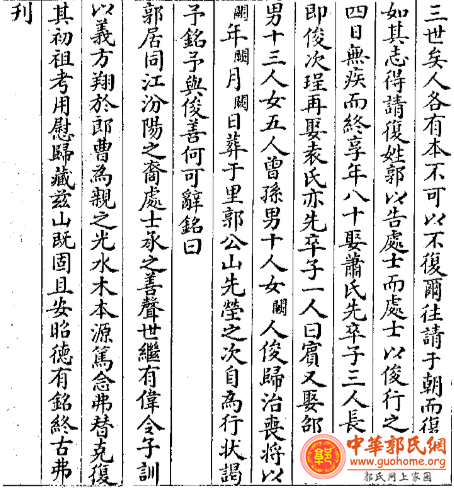 三世矣人各有本不可以不復爾往請于朝而復
如其志得請復姓郭以告處士而處士以俊行之
四日無疾而終享年八十娶蕭氏先卒子三人長
即俊次珵再娶袁氏亦先卒子一人曰賓又娶邹
男十三人女五人曾孫男十人女闕人俊歸治喪將以
闕年闕月闕日葬于里郭公山先塋之次自為行狀謁
予銘予與俊善何可辭銘曰
郭居同江汾陽之裔處士承之善聲世繼有偉令子訓
以義方翔於郎曹為親之光水木本源篤念弗替克復
其初祖考用慰歸藏兹山既固且安昭德有銘終古弗
刊
中華郭氏網
www.guohome.org
郭氏网上家園